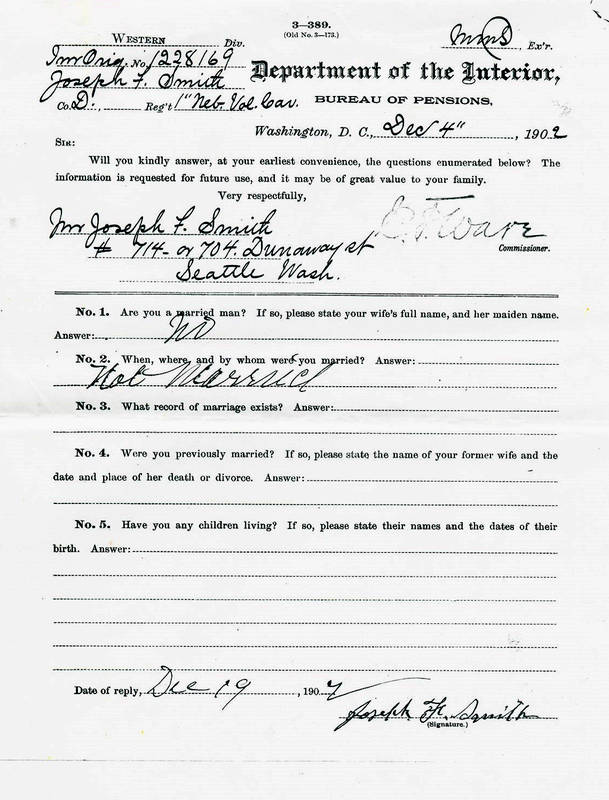 3—389.
(Old No. 3—173.)
WESTERN Div.
Ex'r.
Inv Orig. No. 1228169
Joseph F. Smith
Co. D., Reg't 1" Neb. Vol. Cav.
Department of the Interior,
BUREAU OF PENSIONS,
Washington, D. C., Dec 4", 1902
SIR:
Will you kindly answer, at your earliest convenience, the questions enumerated below? The
information is requested for future use, and it may be of great value to your family.
Very respectfully,
Mr Joseph F. Smith
# 714- or 704. Dunaway st
Seattle Wash.
E. F. Ware
Commissioner.
No. 1. Are you a married man? If so, please state your wife's full name, and her maiden name.
Answer: No
No. 2. When, where, and by whom were you married? Answer:
Not Married
No. 3. What record of marriage exists? Answer:
No. 4. Were you previously married? If so, please state the name of your former wife and the
date and place of her death or divorce. Answer:
No. 5. Have you any children living? If so, please state their names and the dates of their
birth. Answer:
Date of reply, Dec 19, 190
Joseph F. Smith
(Signature.)